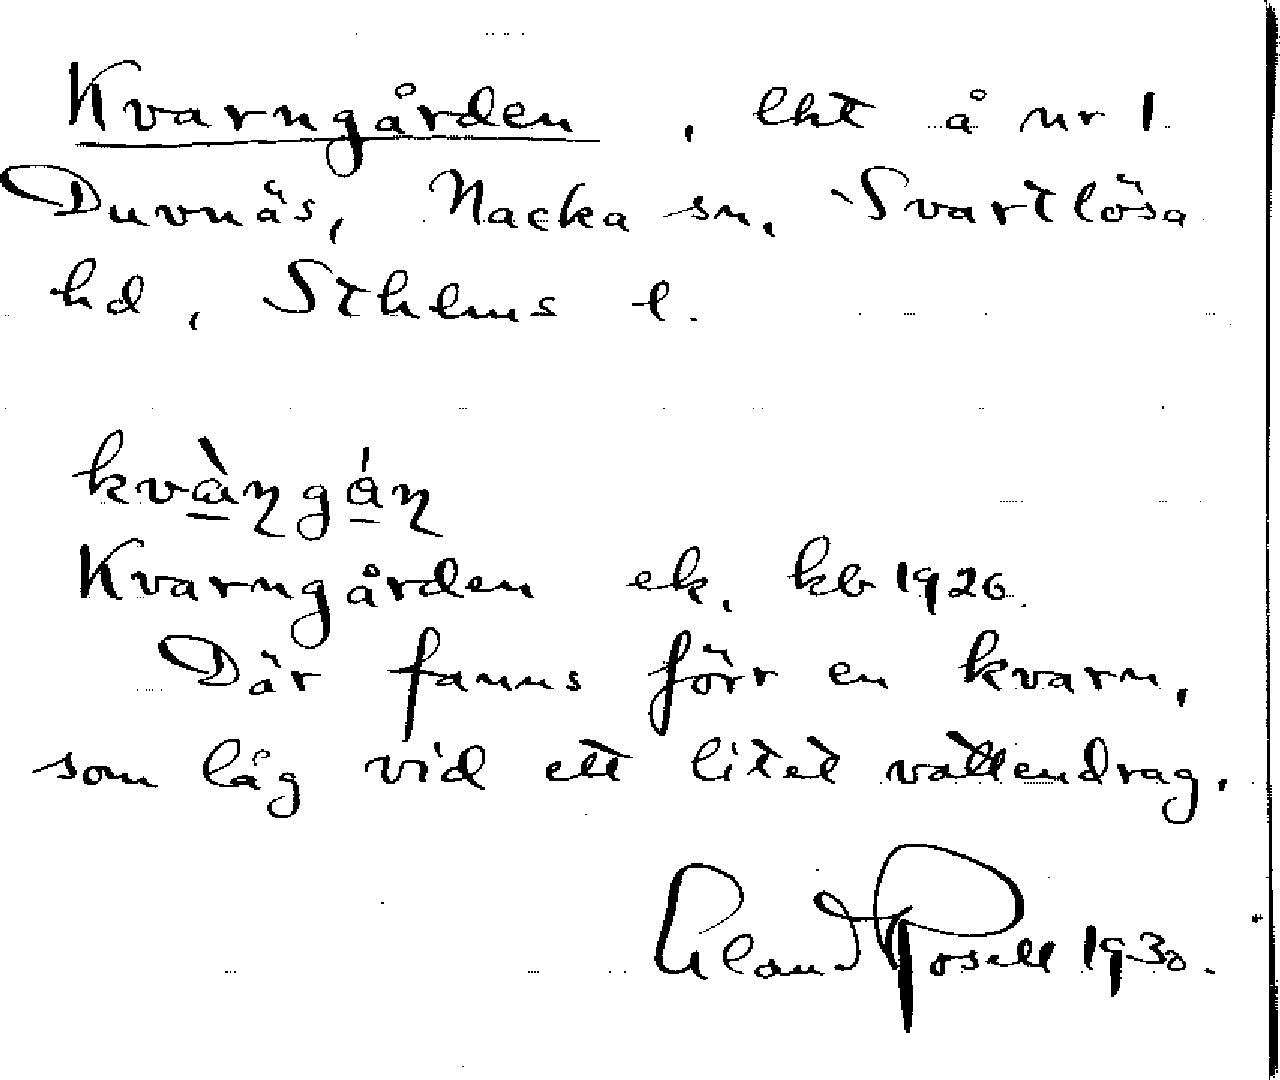 Kvarngården, lht å nr 1
Duvnäs, Nacka sn, Svartlösa
hd, Sthlms l.
kvàɳgáɳ
Kvarngården ek. kb 1926.
Där fanns förr en kvarn,
som låg vid ett litet vattendrag.
Rosell 1930.